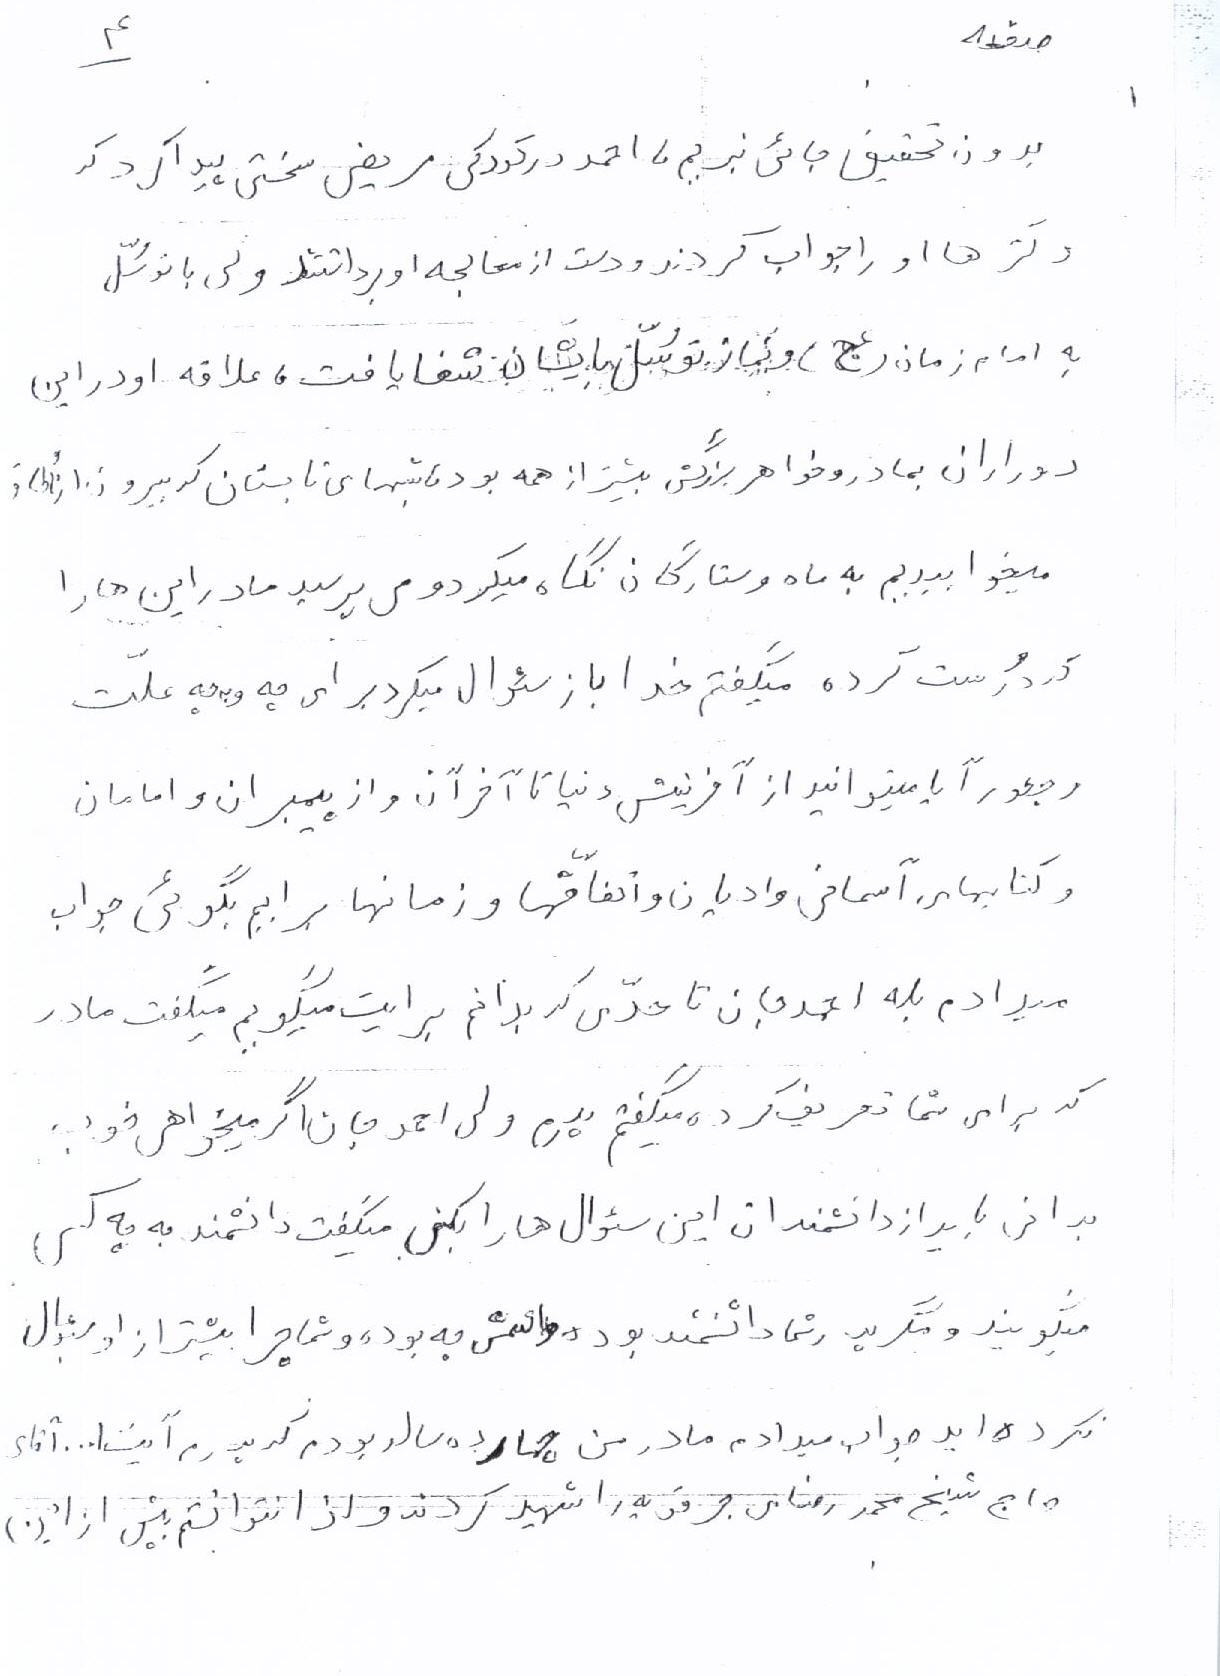 صفحه ۴
۱
بدون تحقیق جائی نبریم، احمد در کودکی مریضی سختی پیدا کرد که
دکترها او را جواب کردند و دست از معالجه او برداشتند ولی با توسّل
به امام زمان (عج) و نماز توسّل بایشان شفا یافت، علاقه او در این
دوراران بمادر و خواهر بزرگش بیشتر از همه بود، شبهای تابستان که بیرون از
میخوابیدیم به ماه و ستارگان نگاه میکرد و می پرسید مادر این ها را
که درُست کرده میگفتم خدا باز سئوال میکرد برای چه و به چه علّت
و چطور آیا میتوانید از آفرینش دنیا تا آخر آن و از پیمبران و امامان
و کتابهای آسمانی و ادیان و اتفاقها و زمانها برایم بگوئی جواب
میدادم بله احمد جان تا حدّی که بدانم برایت میگویم میگفت مادر
که برای شما تعریف کرده میگفتم پدرم ولی احمد جان اگر میخواهی خوب
بدانی باید از دانشمندان این سئوال ها را بکنی میگفت دانشمند به چه کسی
میگویند و مگر پدر شما دانشمند بوده چه بوده و شما چرا بیشتر از او سئوال
نکرده اید جواب میدادم مادر من چهارده ساله بودم که پدرم آیت ا... آقای
حاج شیخ محمد رضای جرقویه را شهید کردند و لذا نتوانستم بیش از این